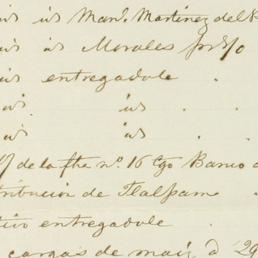 is is Man.l Martinez del
is is Morales
is entregadole
is is
is is
de la fha n.o 16 Cgo Banco
tribucion de Tlalpam
tivo entregadole
cargas de maiz à 29